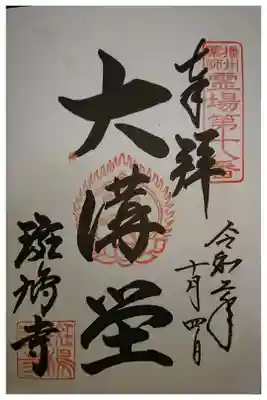 播州薬師霊場第十八番
奉拝
令和二年
十月四日
大講堂
斑鳩寺